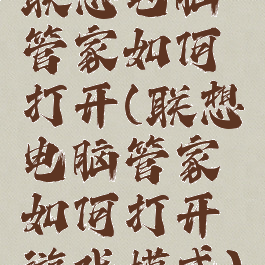 联想电脑
管家如何
打开(联想
电脑管家
如何打开
游戏模式)